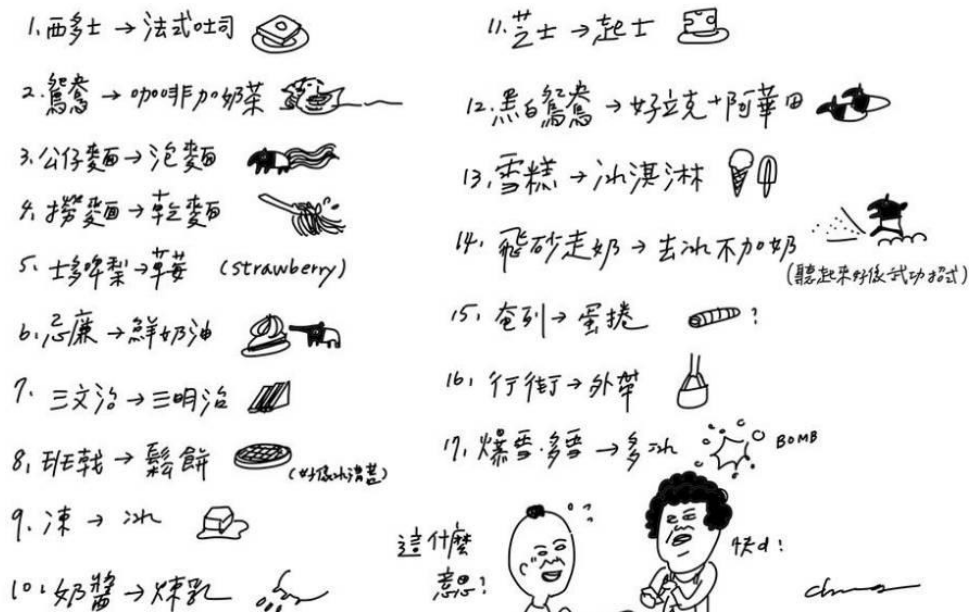 1. 西多士 → 法式吐司
2. 鴛鴦 → 咖啡加奶茶
3. 公仔麵 → 泡麵
4. 撈麵 → 乾麵
5. 士多啤梨 → 草莓 (strawberry)
6. 忌廉 → 鮮奶油
7. 三文治 → 三明治
8. 班戟 → 鬆餅
9. 凍 → 冰
10. 奶醬 → 煉乳
11. 芝士 → 起士
12. 黑白鴛鴦 → 好立克+阿華田
13. 雪糕 → 冰淇淋
14. 飛砂走奶 → 去冰不加奶
(聽起來好像武功招式)
15. 奄列 → 蛋捲 ?
16. 行街 → 外帶
17. 爆雪.多雪 → 多冰 BOMB
這什麼
意思?
快d!